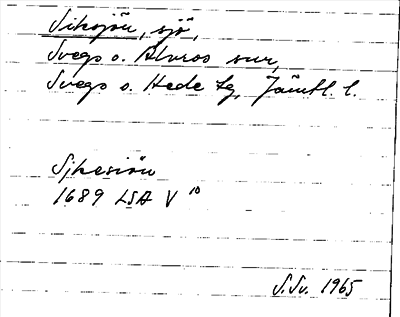 Siksjön, sjö,
Svegs o. Älvros snr,
Svegs o. Hede tg, Jämtl. l.
Sikesiön
1689 LSA V 10
S.Sv. 1965